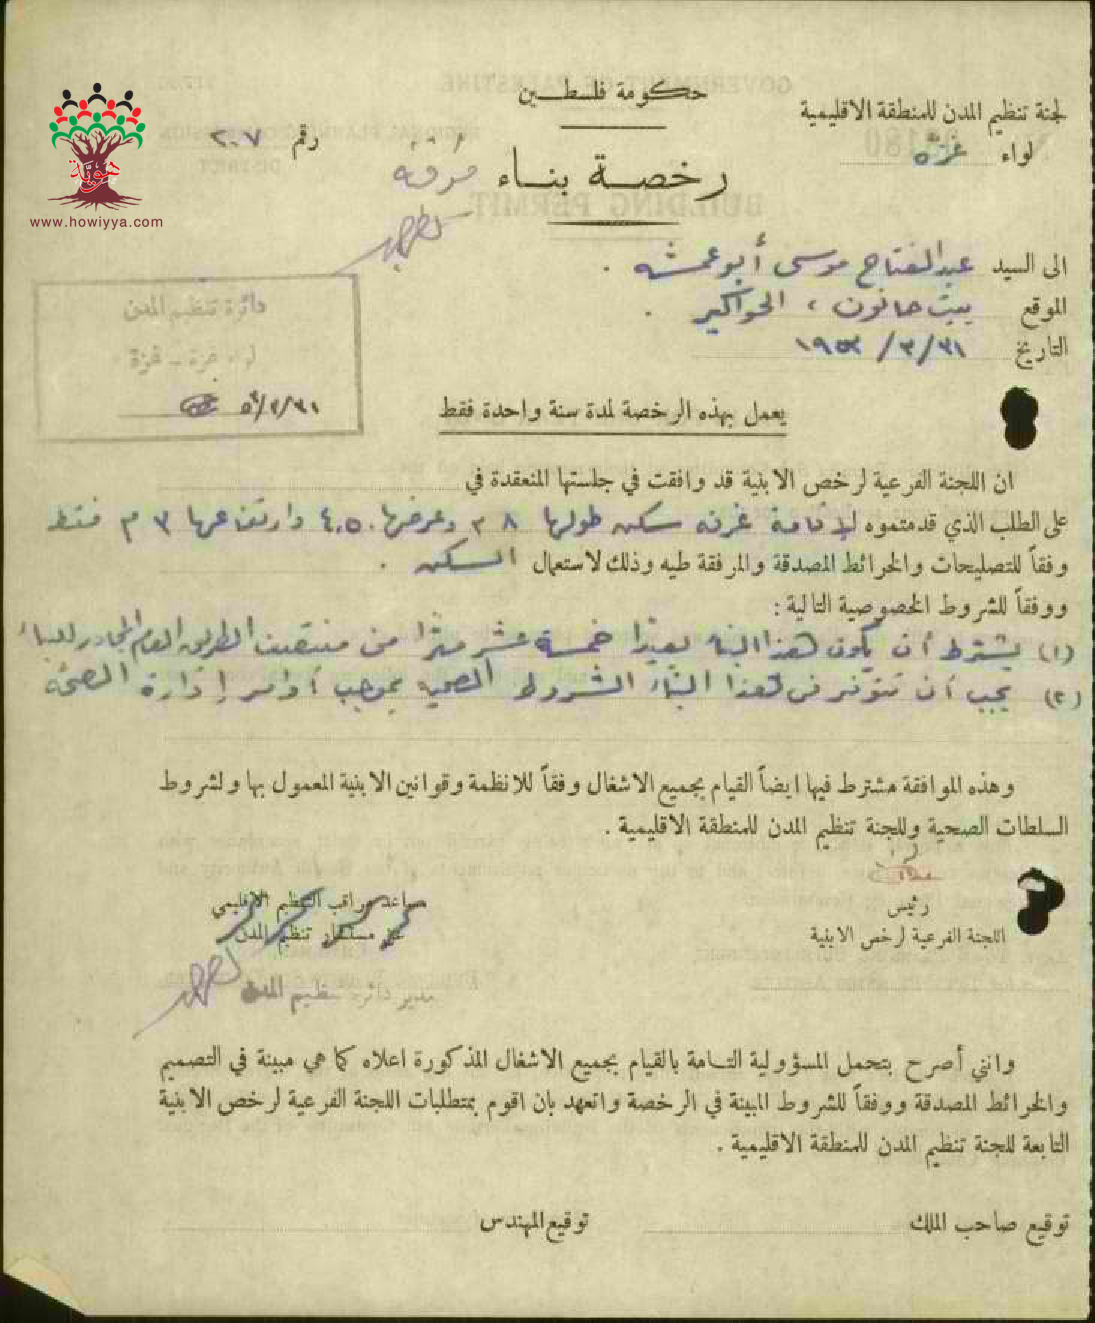 حكومة فلسطين
لجنة تنظيم المدن للمنطقة الاقليمية
لواء غزة
رقم ٢٠٧
رخصة بناء
هوية
www.howiyya.com
الى السيد عبدالفتاح موسى أبو عمشه .
الموقع بيت حانون ، الحواكير .
التاريخ ٣١/٣/١٩٥٣
دائرة تنظيم المدن
لواء غزة - غزة
يعمل بهذه الرخصة لمدة سنة واحدة فقط
ان اللجنة الفرعية لرخص الابنية قد وافقت في جلستها المنعقدة في
على الطلب الذي قدمتموه لإقامة غرفه سكن طولها ٨ م وعرضها ٤,٥٠ وارتفاعها ٣ م فقط
وفقاً للتصليحات والخرائط المصدقة والمرفقة طيه وذلك لاستعمال السكن .
ووفقاً للشروط الخصوصية التالية :
(١) يشترط أن يكون هذا البناء بعيدا خمسة عشر مترا من منتصف الطريق العام المجاور للبناء
(٢) يجب أن تتوفر في هذا البناء الشروط الصحية بموجب أوامر إدارة الصحة
وهذه الموافقة مشترط فيها ايضاً القيام بجميع الاشغال وفقاً للانظمة وقوانين الابنية المعمول بها ولشروط
السلطات الصحية وللجنة تنظيم المدن للمنطقة الاقليمية .
رئيس
اللجنة الفرعية لرخص الابنية
مساعد مراقب التنظيم الاقليمي
عن مستشار تنظيم المدن
مدير دائرة تنظيم المدن
وانني أصرح بتحمل المسؤولية التامة بالقيام بجميع الاشغال المذكورة اعلاه كما هي مبينة في التصميم
والخرائط المصدقة ووفقاً للشروط المبينة في الرخصة واتعهد بان اقوم بمتطلبات اللجنة الفرعية لرخص الابنية
التابعة للجنة تنظيم المدن للمنطقة الاقليمية .
توقيع صاحب الملك
توقيع المهندس